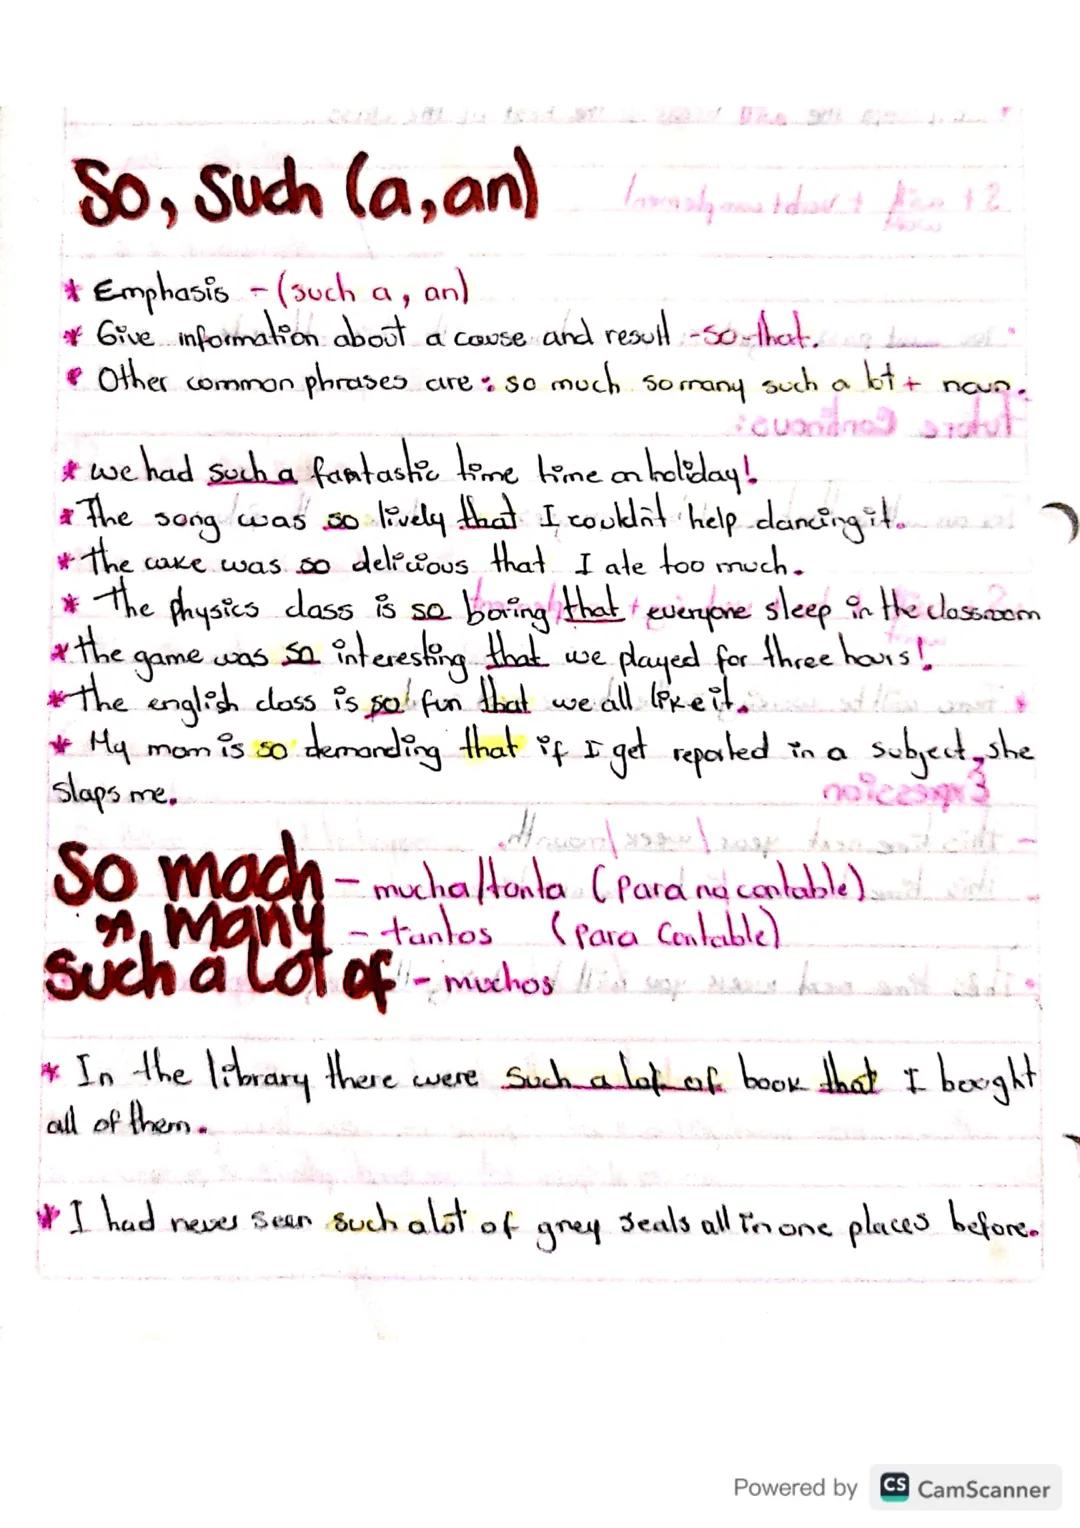 So, Such (a, an)
* Emphasis - (such a, an)
* Give information about a cause and result - so-that.
* Other common phrases are: so much so many such a lot + noun.
* we had such a fantastic time time on holiday!
* The song was so lively that I couldn't help dancing it.
* the cake was so delicious that I ate too much.
* the physics class is so boring that everyone sleep in the classroom
* the game was so interesting that we played for three hours!
* the english class is so fun that we all like it.
* My mom is so demanding that if I get reported in a subject, she
slaps me.
So mach - mucha/tonta (para no contable)
" , many - tantos (para contable)
Such a lot of - muchos
* In the library there were such a lot of book that I bought
all of them.
* I had never seen such a lot of grey seals all in one places before.
Powered by CS CamScanner